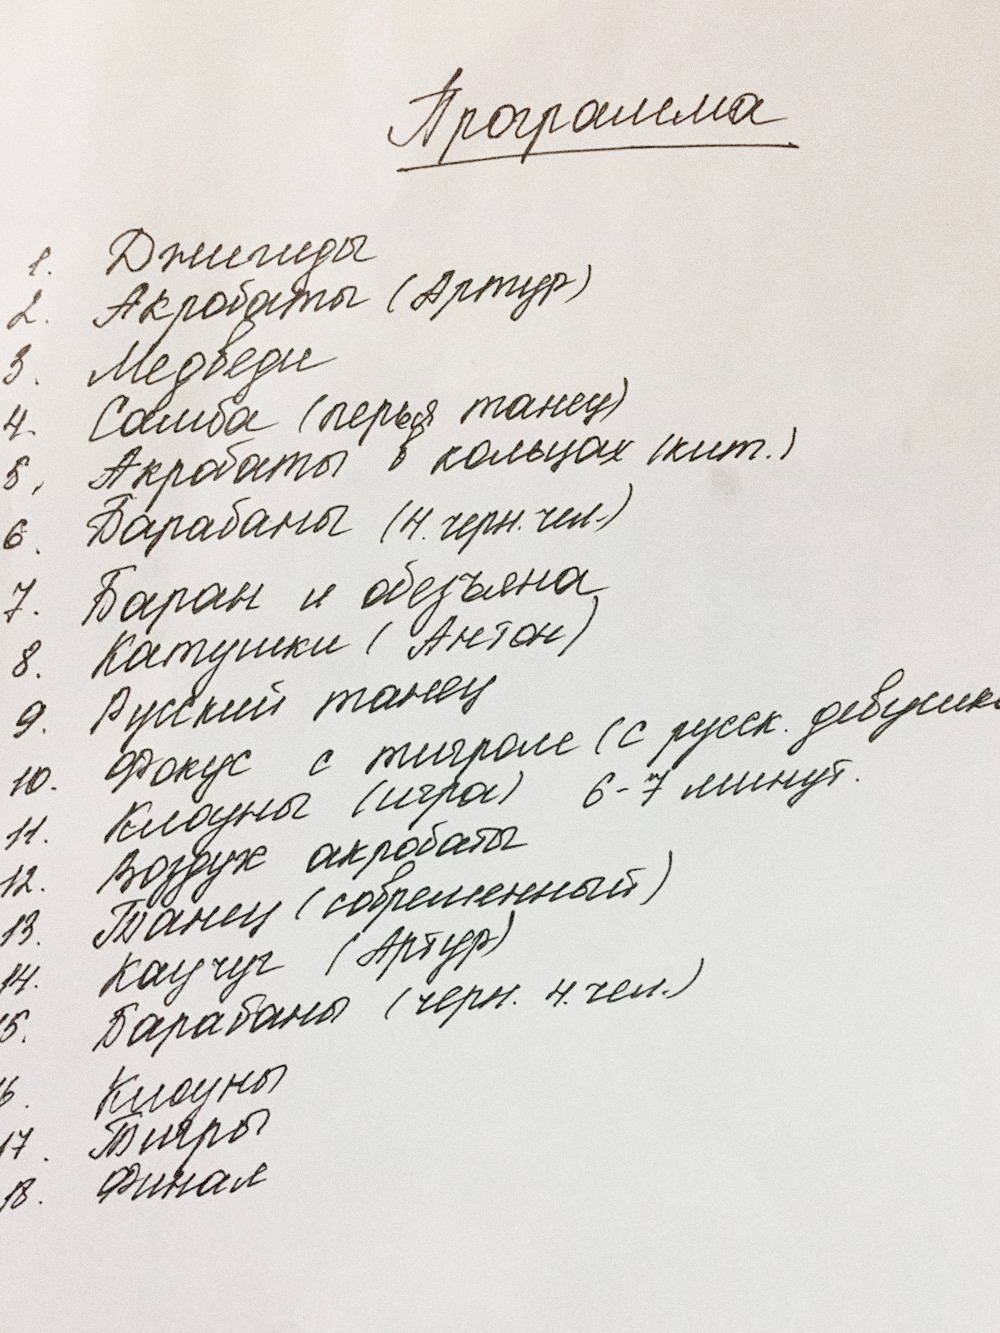 Программа
1. Джигиды
2. Акробаты (Артур)
3. Медведи
4. Самба (перья танец)
5. Акробаты в кольцах (кит.)
6. Барабаны (н. черн. чел.)
7. Баран и обезъяна
8. Катушки (Антон)
9. Русский танец
10. Фокус с тигром (с русск. девушк
11. Клоуны (игра) 6-7 минут.
12. Воздух акробаты
13. Танец (современный)
14. Каучуг (Артур)
15. Барабаны (черн. н. чел.)
16. Клоуны
17. Тигры
18. Финал